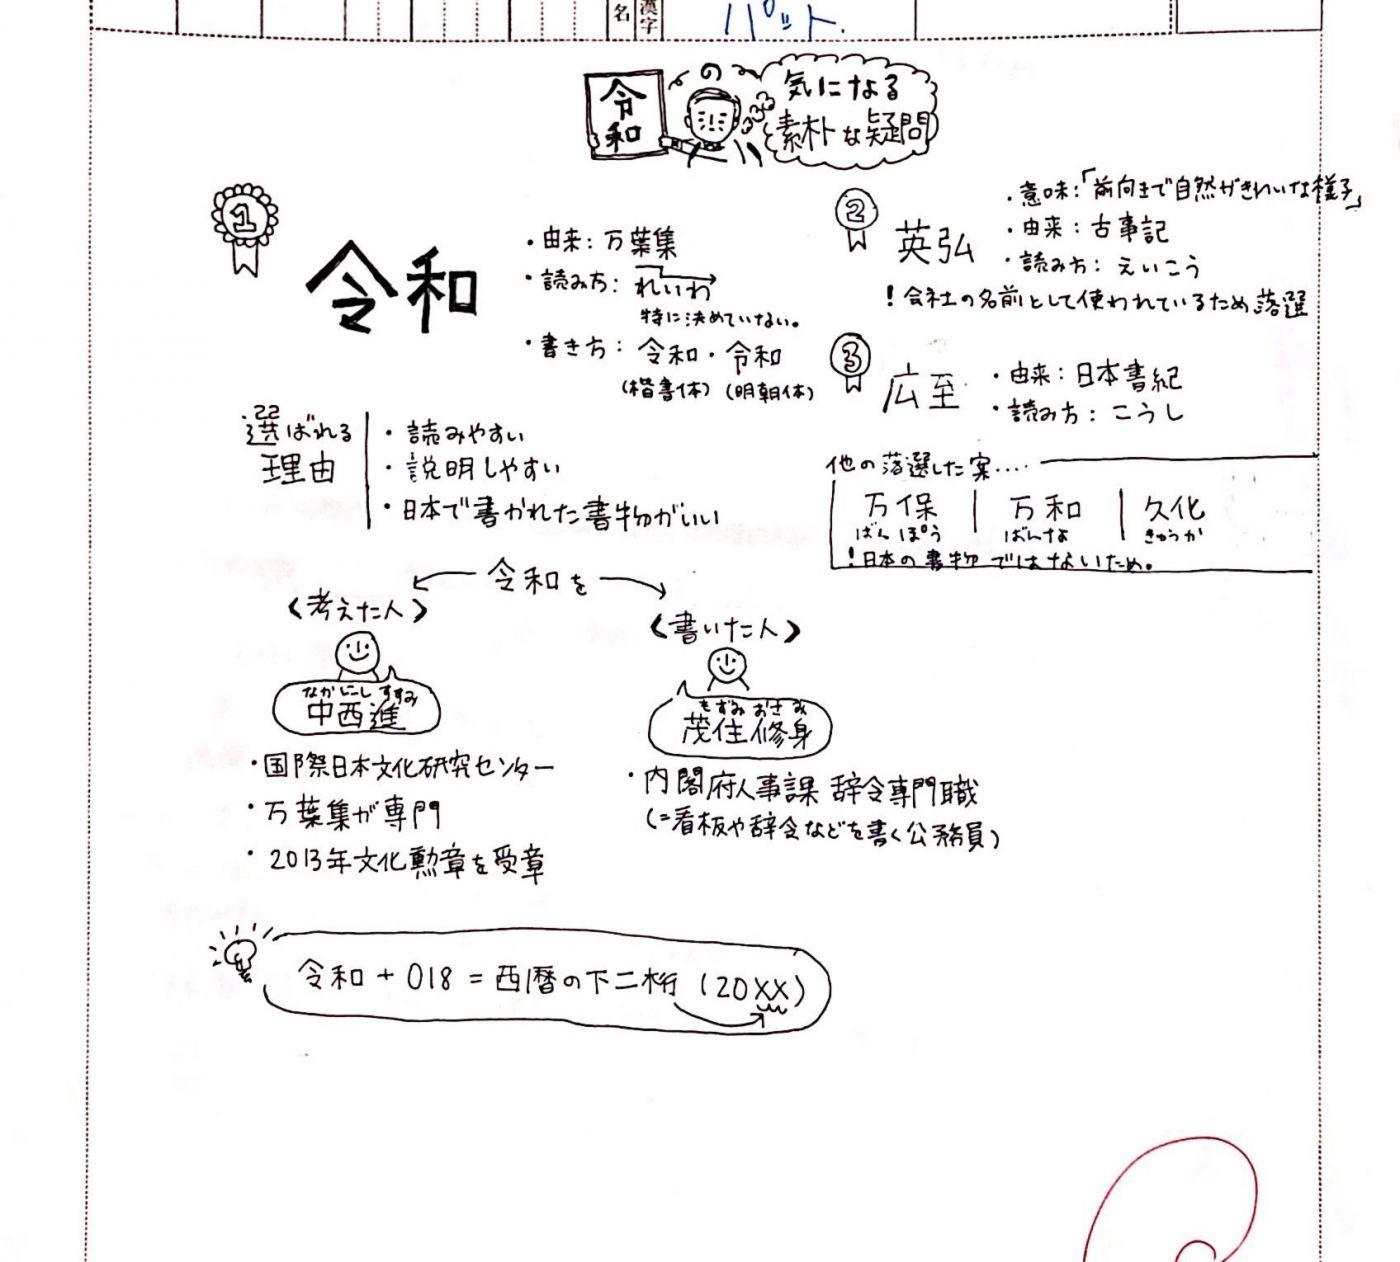 漢字
名
パット.
令和
の
気になる
素朴な疑問
1
令和
・由来：万葉集
・読み方：れいわ
特に決めていない。
・書き方：令和・令和
(楷書体) (明朝体)
選ばれる
理由
・読みやすい
・説明しやすい
・日本で書かれた書物がいい
2
英弘
・意味：「前向きで自然がきれいな様子」
・由来：古事記
・読み方：えいこう
！会社の名前として使われているため落選
3
広至
・由来：日本書紀
・読み方：こうし
他の落選した案‥‥
万保 | 万和 | 久化
ばんぽう ばんな きゅうか
！日本の書物ではないため。
令和を
〈考えた人〉
なかにし すすみ
中西進
・国際日本文化研究センター
・万葉集が専門
・2013年文化勲章を受章
〈書いた人〉
もずみ おさみ
茂住修身
・内閣府人事課 辞令専門職
(=看板や辞令などを書く公務員)
令和 + 018 = 西暦の下二桁 (20XX)